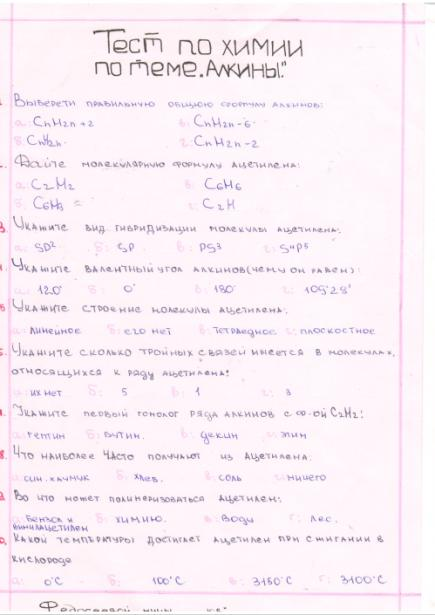 Тест по химии
по теме „Алкины."
Выберети правильную общую формулу алкинов:
а: CnH2n+2 в: CnH2n-6
б: CnH2n г: CnH2n-2
Дайте молекулярную формулу ацетилена:
а: C2H2 в: C6H6
б: г: C2H
3. Укажите вид гибридизации молекулы ацетилена:
а: SP² б: SP в: PS³ г: S⁴P⁵
Укажите валентный угол алкинов (чему он равен):
а: 120° б: 0° в: 180° г: 109°28'
5 Укажите строение молекулы ацетилена:
а: линейное б: его нет в: тетраедное г: плоскостное
Укажите сколько тройных связей имеется в молекулах,
относящихся к ряду ацетилена:
а: их нет б: 5 в: 1 г: 3
Укажите первый гомолог ряда алкинов с ф-ой C2H2:
а: гептин б: бутин. в: декин г: этин
8. Что наиболее часто получают из ацетилена:
а: син. каучук б: хлеб. в: соль г: ничего
Во что может полимеризоваться ацетилен:
а: бензол и б: химию. в: воду г: лес.
винилацетилен
Какой температуры достигает ацетилен при сжигании в
кислороде
а: 0°С б: 100°С в: 3150°С г: 3100°С